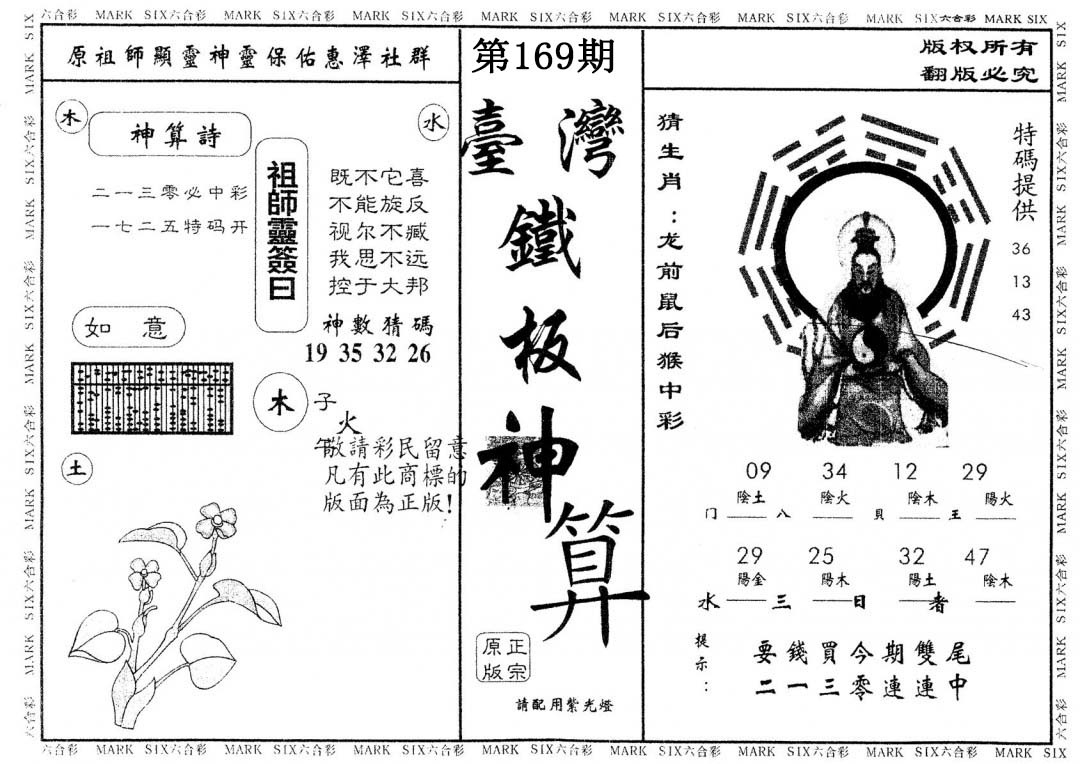 六合彩 MARK SIX六合彩 MARK SIX六合彩 MARK SIX六合彩 MARK SIX六合彩 MARK SIX六合彩 MARK SIX六合彩 MARK SIX六合彩 MARK SIX
原祖師顯靈神靈保佑惠澤社群
木
水
神算詩
二一三零必中彩
一七二五特码开
祖師靈簽曰
既不它喜
不能旋反
视尔不臧
我思不远
控于大邦
神數猜碼
19 35 32 26
如 意
木
子
火
午
敬請彩民留意
凡有此商標的
版面為正版!
土
第169期
臺灣
鐵
板
神
算
正宗
原版
請配用紫光燈
版权所有
翻版必究
猜生肖:龙前鼠后猴中彩
特碼提供
36
13
43
09 34 12 29
陰土 陰火 陰木 陽火
门 八 貝 王
29 25 32 47
陽金 陽木 陽土 陰木
水 三 日 者
提示:
要錢買今期雙尾
二一三零連連中
六合彩 MARK SIX六合彩 MARK SIX六合彩 MARK SIX六合彩 MARK SIX六合彩 MARK SIX六合彩 MARK SIX六合彩 MARK SIX六合彩 MARK SIX